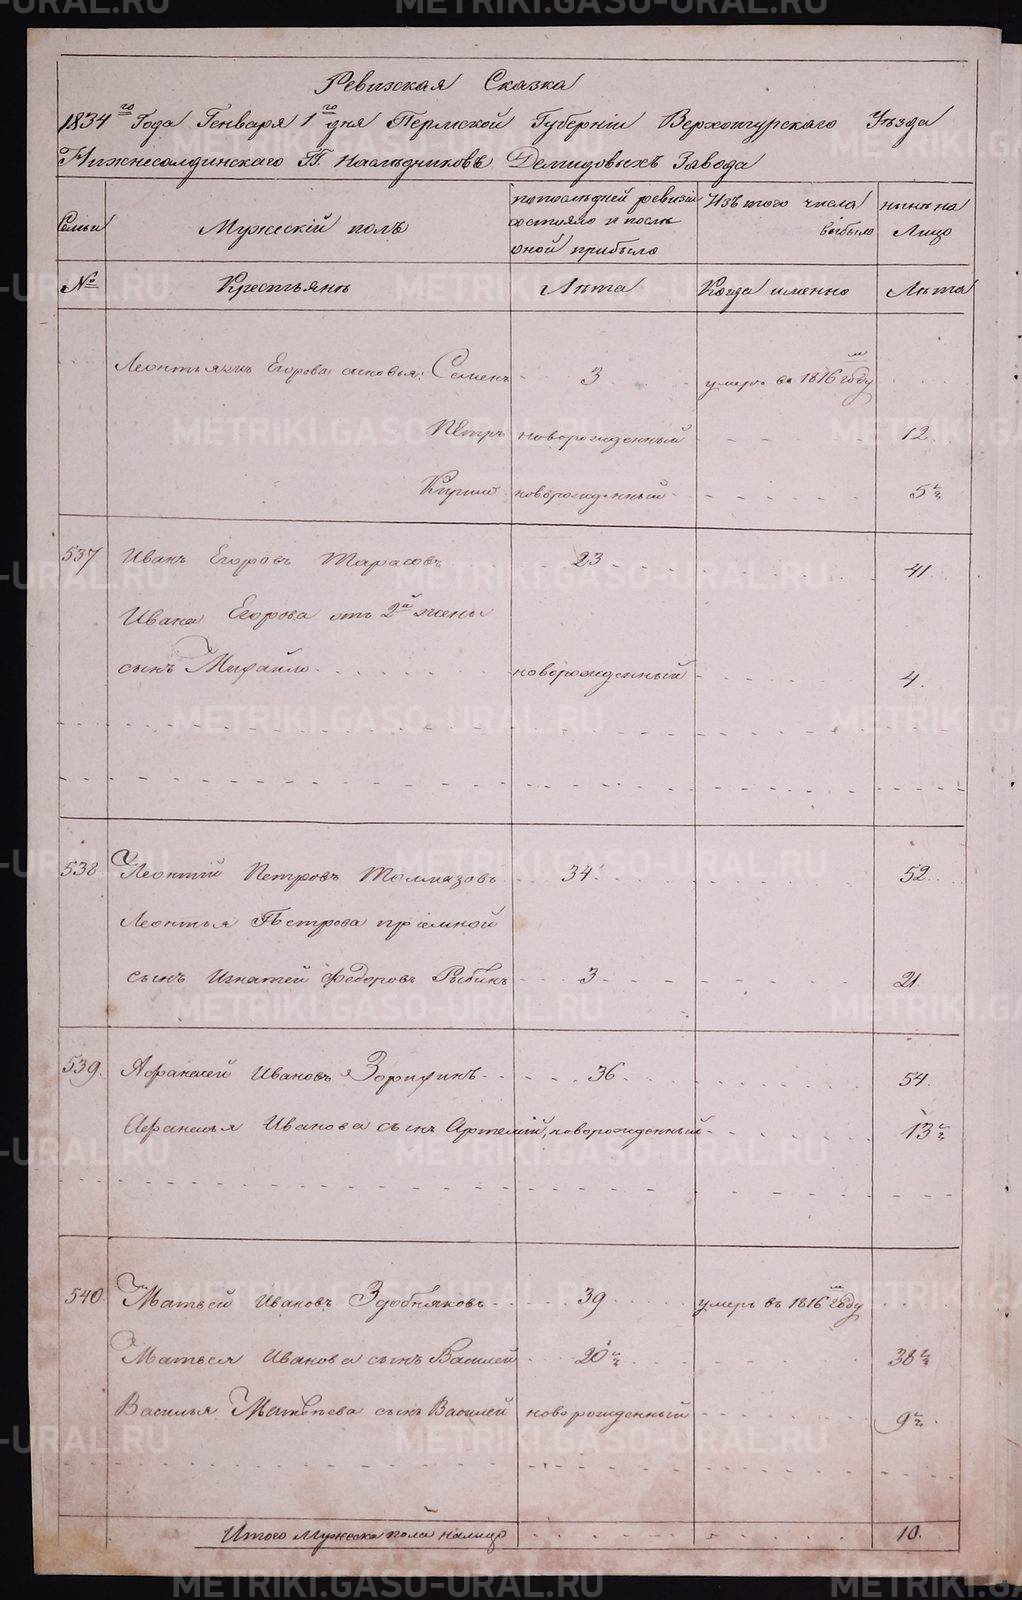 Ревизская Сказка
1834го Года Генваря 1го дня Пермской Губерніи Верхотурскаго Уѣзда
Нижнесалдинскаго Гг. Наслѣдниковъ Демидовыхъ Завода
Семьи
Мужескій полъ
по послѣдней ревизіи
состояло и послѣ
оной прибыло
Изъ того числа
выбыло
нынѣ на
Лицо
№ Крестьянъ Лѣта Когда именно Лѣта
Егорова сыновья: Семенъ 3 умеръ въ 1816м году
Петръ новорожденный 12
Кирилъ новорожденный 5½
537 Иванъ Егоровъ Тарасовъ 23 41
Ивана Егорова отъ 2й жены
сынъ Михайло новорожденный 4.
538 Леонтій Петровъ Толмазовъ 34 52
Леонтья Петрова пріемной
сынъ Игнатей Федоровъ Рыбинъ 3 21.
539. Афанасей Ивановъ Зорихинъ 36 54.
Афанасья Иванова сынъ Артемій, новорожденный 13½
540 Матвей Ивановъ Здобняковъ 39 умеръ въ 1816м году
Матвея Иванова сынъ Василей 20½ 38½
Василья Матвѣева сынъ Василей новорожденный 9½
Итого Мужеска пола налицо 10.
METRIKI.GASO-URAL.RU